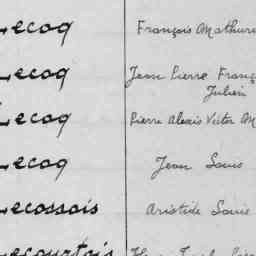 Lecoq François Mathuri
Lecoq Jean Pierre Franç
Julien
Lecoq Pierre Alexis Victor M
Lecoq Jean Louis
Lecossois Aristide Louis
Lecourtois